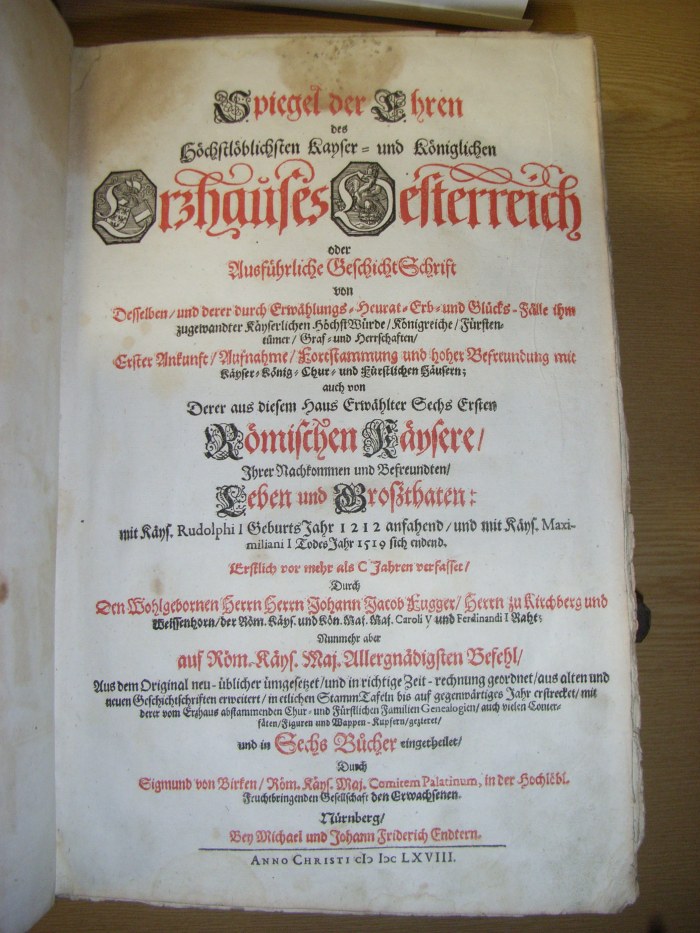 Spiegel der Ehren
des
Höchstlöblichsten Kayser- und Königlichen
Erzhauses Oesterreich
oder
Ausführliche GeschichtSchrift
von
Desselben/ und derer durch Erwählungs- Heurat- Erb- und Glücks-Fälle ihm
zugewandter Käyserlichen HöchstWürde/ Königreiche/ Fürsten-
tümer/ Graf- und Herrschaften/
Erster Ankunft/ Aufnahme/ Fortstammung und hoher Befreundung mit
Käyser- König- Chur- und Fürstlichen Häusern;
auch von
Derer aus diesem Haus Erwählter Sechs Ersten
Römischen Käysere/
Ihrer Nachkommen und Befreundten/
Leben und Großthaten:
mit Käys. Rudolphi I GeburtsJahr 1212 anfahend/ und mit Käys. Maxi-
miliani I TodesJahr 1519 sich endend.
Erstlich vor mehr als C Jahren verfasset/
Durch
Den Wohlgebornen Herrn Herrn Johann Jacob Fugger/ Herrn zu Kirchberg und
Weissenhorn/ der Röm. Käys. und Kön. Maj. Maj. Caroli V und Ferdinandi I Raht;
Nunmehr aber
auf Röm. Käys. Maj. Allergnädigsten Befehl/
Aus dem Original neu-üblicher ümgesetzet/ und in richtige Zeit-rechnung geordnet/ aus alten und
neuen Geschichtschriften erweitert/ in etlichen StammTafeln bis auf gegenwärtiges Jahr erstrecket/ mit
derer vom Erzhaus abstammenden Chur- und Fürstlichen Familien Genealogien/ auch vielen Conter-
fäten/ Figuren und Wappen-Kupfern/ gezieret/
und in Sechs Bücher eingetheilet/
Durch
Sigmund von Birken/ Röm. Käys. Maj. Comitem Palatinum, in der Hochlöbl.
Fruchtbringenden Gesellschaft den Erwachsenen.
Nürnberg/
Bey Michael und Johann Friderich Endtern.
ANNO CHRISTI cIɔ Iɔc LXVIII.